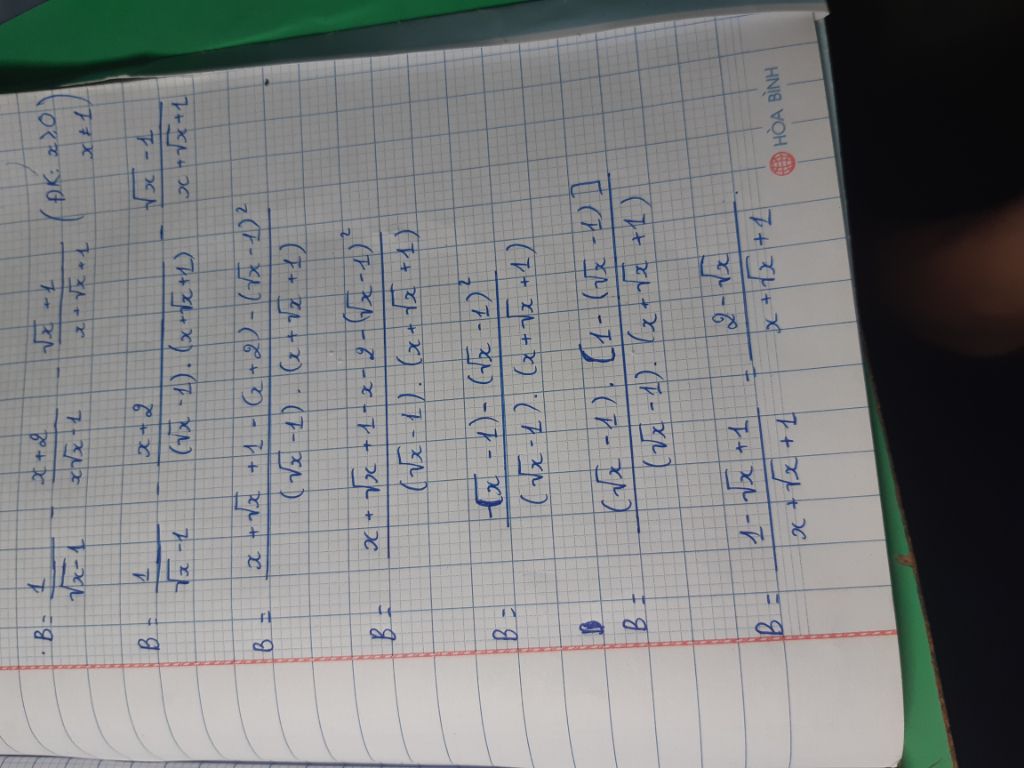 . B = \frac{1}{\sqrt{x}-1} - \frac{x+2}{x\sqrt{x}-1} - \frac{\sqrt{x}-1}{x+\sqrt{x}+1} (ĐK: x≥0 x≠1)
B = \frac{1}{\sqrt{x}-1} - \frac{x+2}{(\sqrt{x}-1).(x+\sqrt{x}+1)} - \frac{\sqrt{x}-1}{x+\sqrt{x}+1}
B = \frac{x+\sqrt{x}+1-(x+2)-(\sqrt{x}-1)^2}{(\sqrt{x}-1).(x+\sqrt{x}+1)}
B = \frac{x+\sqrt{x}+1-x-2-(\sqrt{x}-1)^2}{(\sqrt{x}-1).(x+\sqrt{x}+1)}
B = \frac{(\sqrt{x}-1)-(\sqrt{x}-1)^2}{(\sqrt{x}-1).(x+\sqrt{x}+1)}
B = \frac{(\sqrt{x}-1).[1-(\sqrt{x}-1)]}{(\sqrt{x}-1).(x+\sqrt{x}+1)}
B = \frac{1-\sqrt{x}+1}{x+\sqrt{x}+1} = \frac{2-\sqrt{x}}{x+\sqrt{x}+1}.
HÒA BÌNH